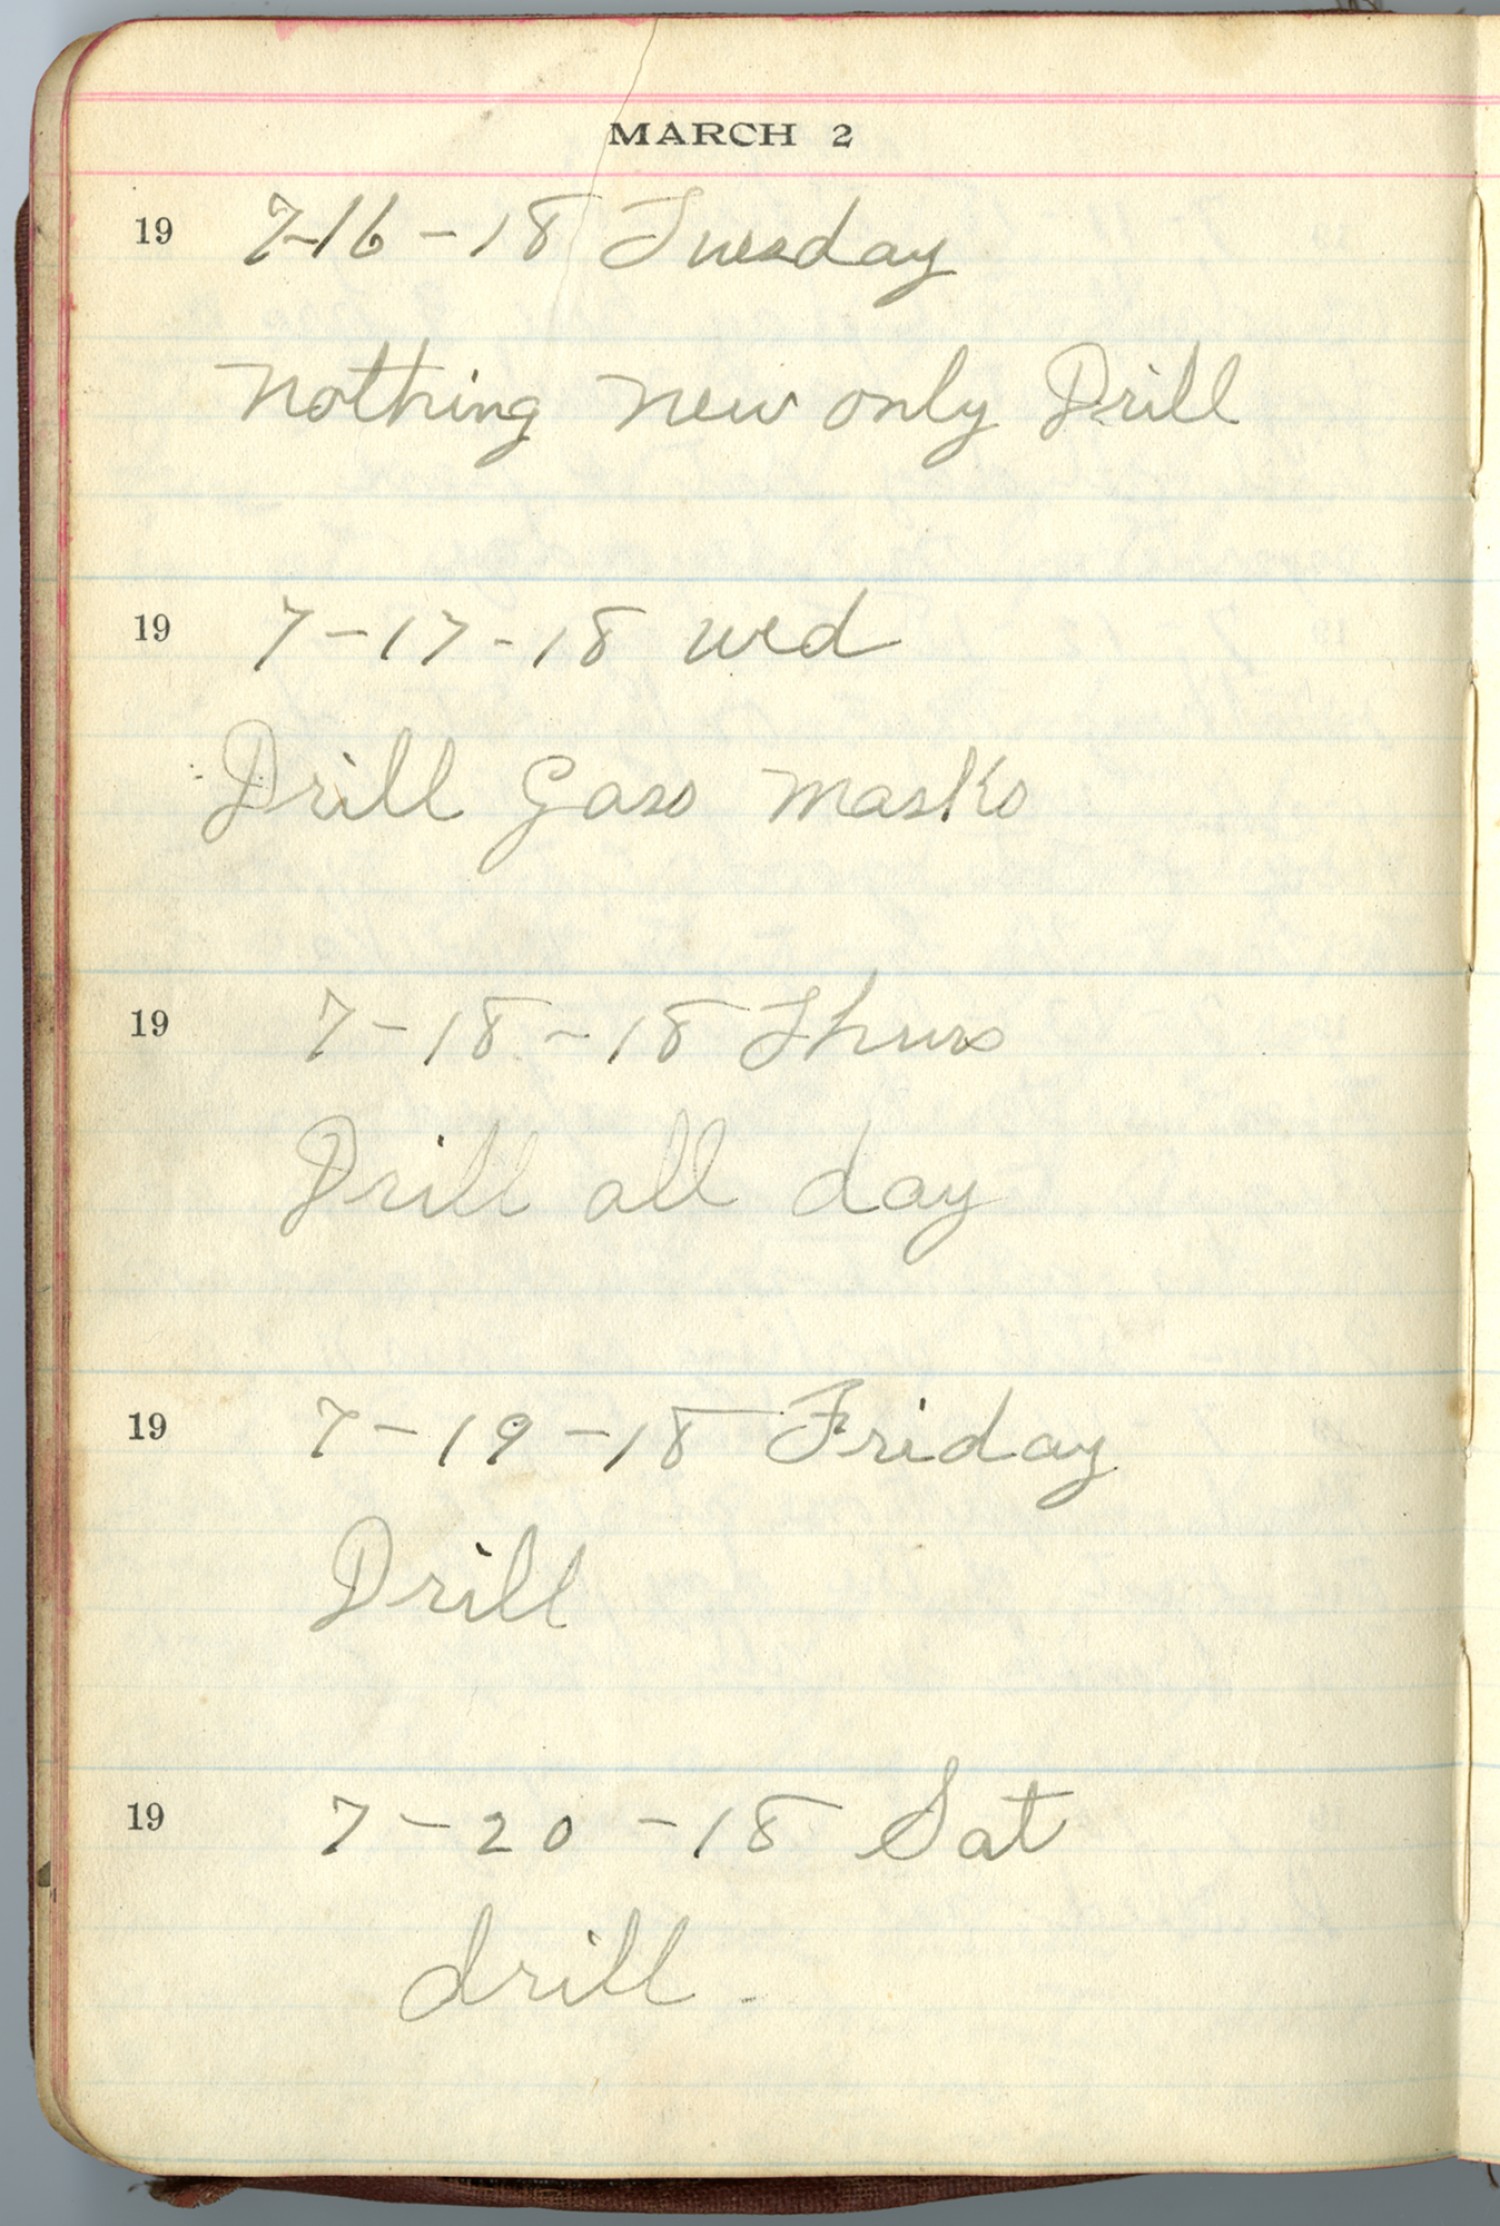 MARCH 2
19 7-16-18 Tuesday
Nothing new only Drill
19 7-17-18 wed
Drill Gass masks
19 7-18-18 Thurs
Drill all day
19 7-19-18 Friday
Drill
19 7-20-18 Sat
drill.